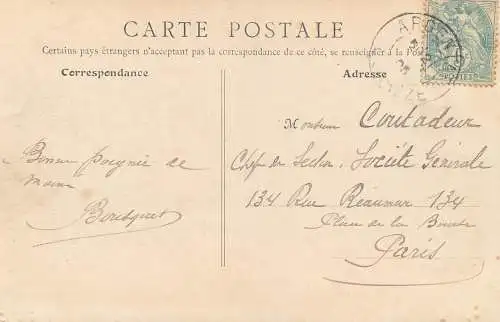 CARTE POSTALE
Certains pays étrangers n'acceptant pas la correspondance de ce côté, se renseigner à la Poste
Correspondance
Adresse
ARGENTAT
CORRÈZE
Bonne poignée de
mains
Bousquet
Monsieur Coutadeur
Chef de Section, Société Générale
134 Rue Réaumur 134
Place de la Bourse
Paris